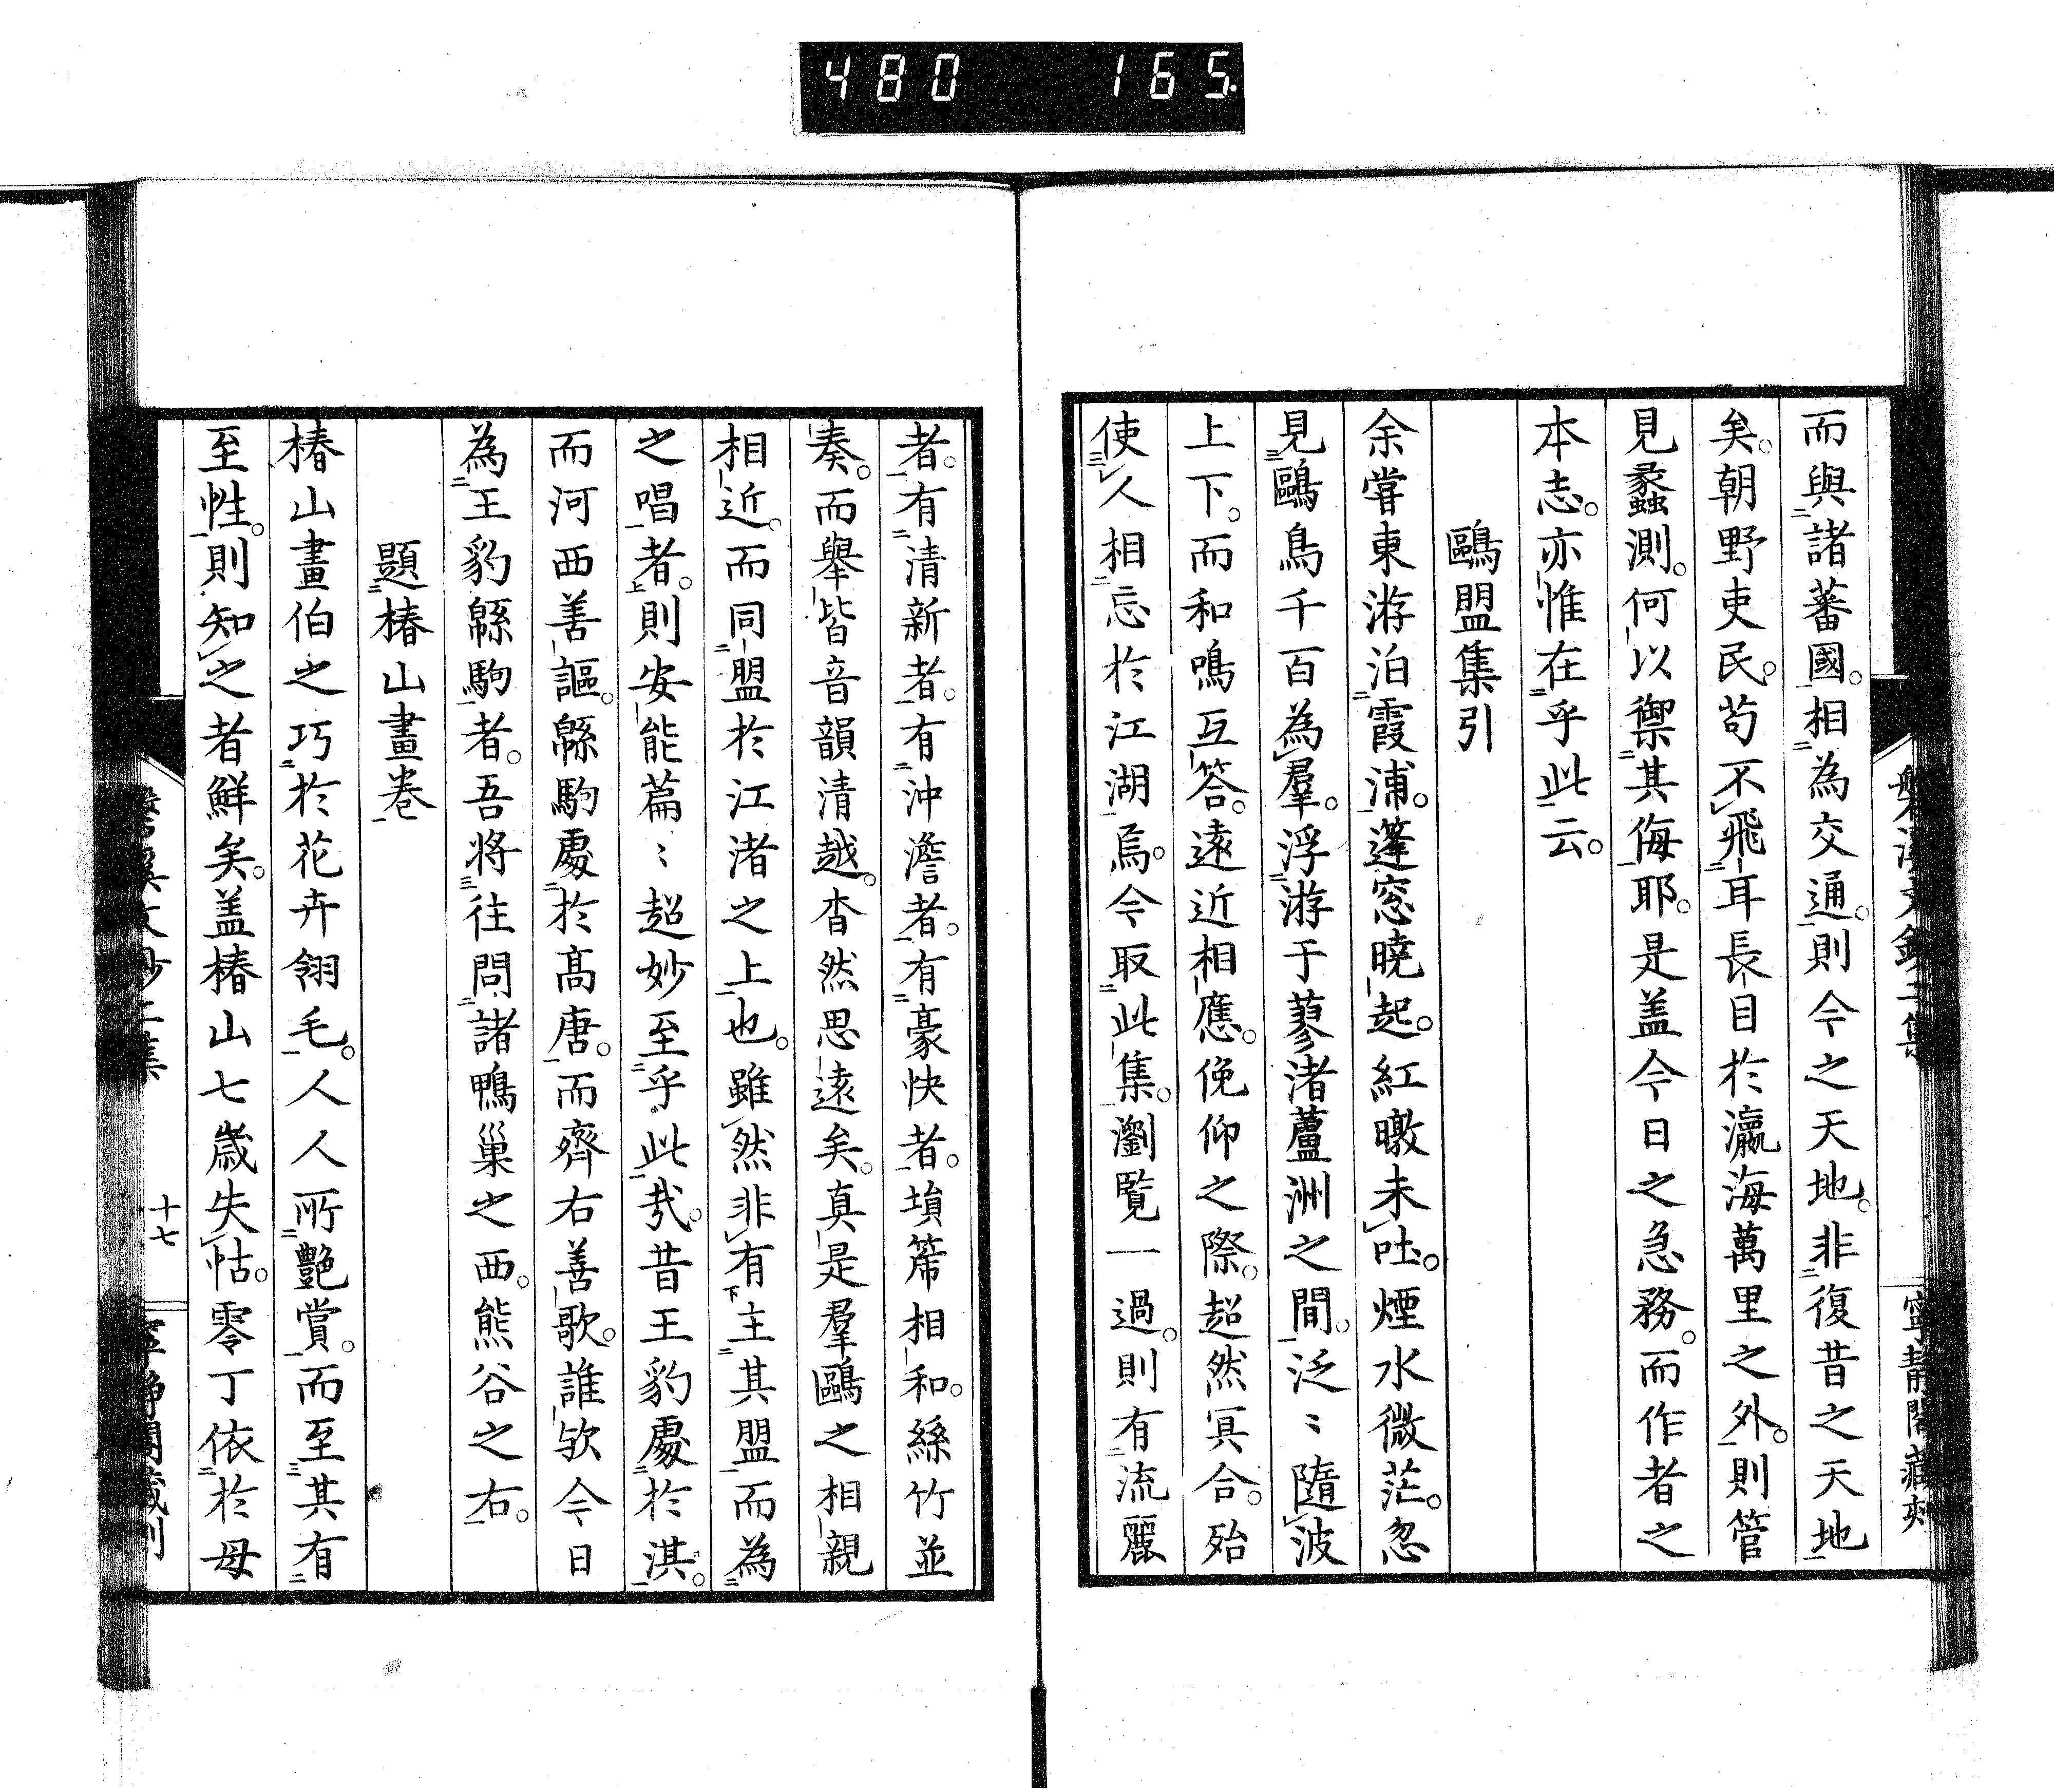 480 165.
而與諸蕃國。相為交通。則今之天地。非復昔之天地
矣。朝野吏民。苟不飛耳長目於瀛海萬里之外。則管
見蠡測。何以禦其侮耶。是盖今日之急務。而作者之
本志。亦惟在乎此云。
鷗盟集引
余嘗東游泊霞浦。蓬窓曉起。紅暾未吐。煙水微茫。忽
見鷗鳥千百為羣。浮游于蓼渚蘆洲之間。泛〻隨波
上下。而和鳴互答。遠近相應。俛仰之際。超然冥合。殆
使人相忘於江湖焉。今取此集。瀏覽一過。則有流麗
者。有清新者。有沖澹者。有豪快者。塤箎相和。絲竹並
奏。而舉皆音韻清越。杳然思遠矣。真是羣鷗之相親
相近。而同盟於江渚之上也。雖然非有主其盟而為
之唱者。則安能篇〻超妙至乎此哉。昔王豹處於淇。
而河西善謳。緜駒處於高唐。而齊右善歌。誰欤今日
為王豹緜駒者。吾將往問諸鴨巢之西。熊谷之右。
題椿山畫卷
椿山畫伯之巧於花卉翎毛。人人所艷賞。而至其有
至性。則知之者鮮矣。盖椿山七歳失怙。零丁依於母
十七
寧靜閣藏